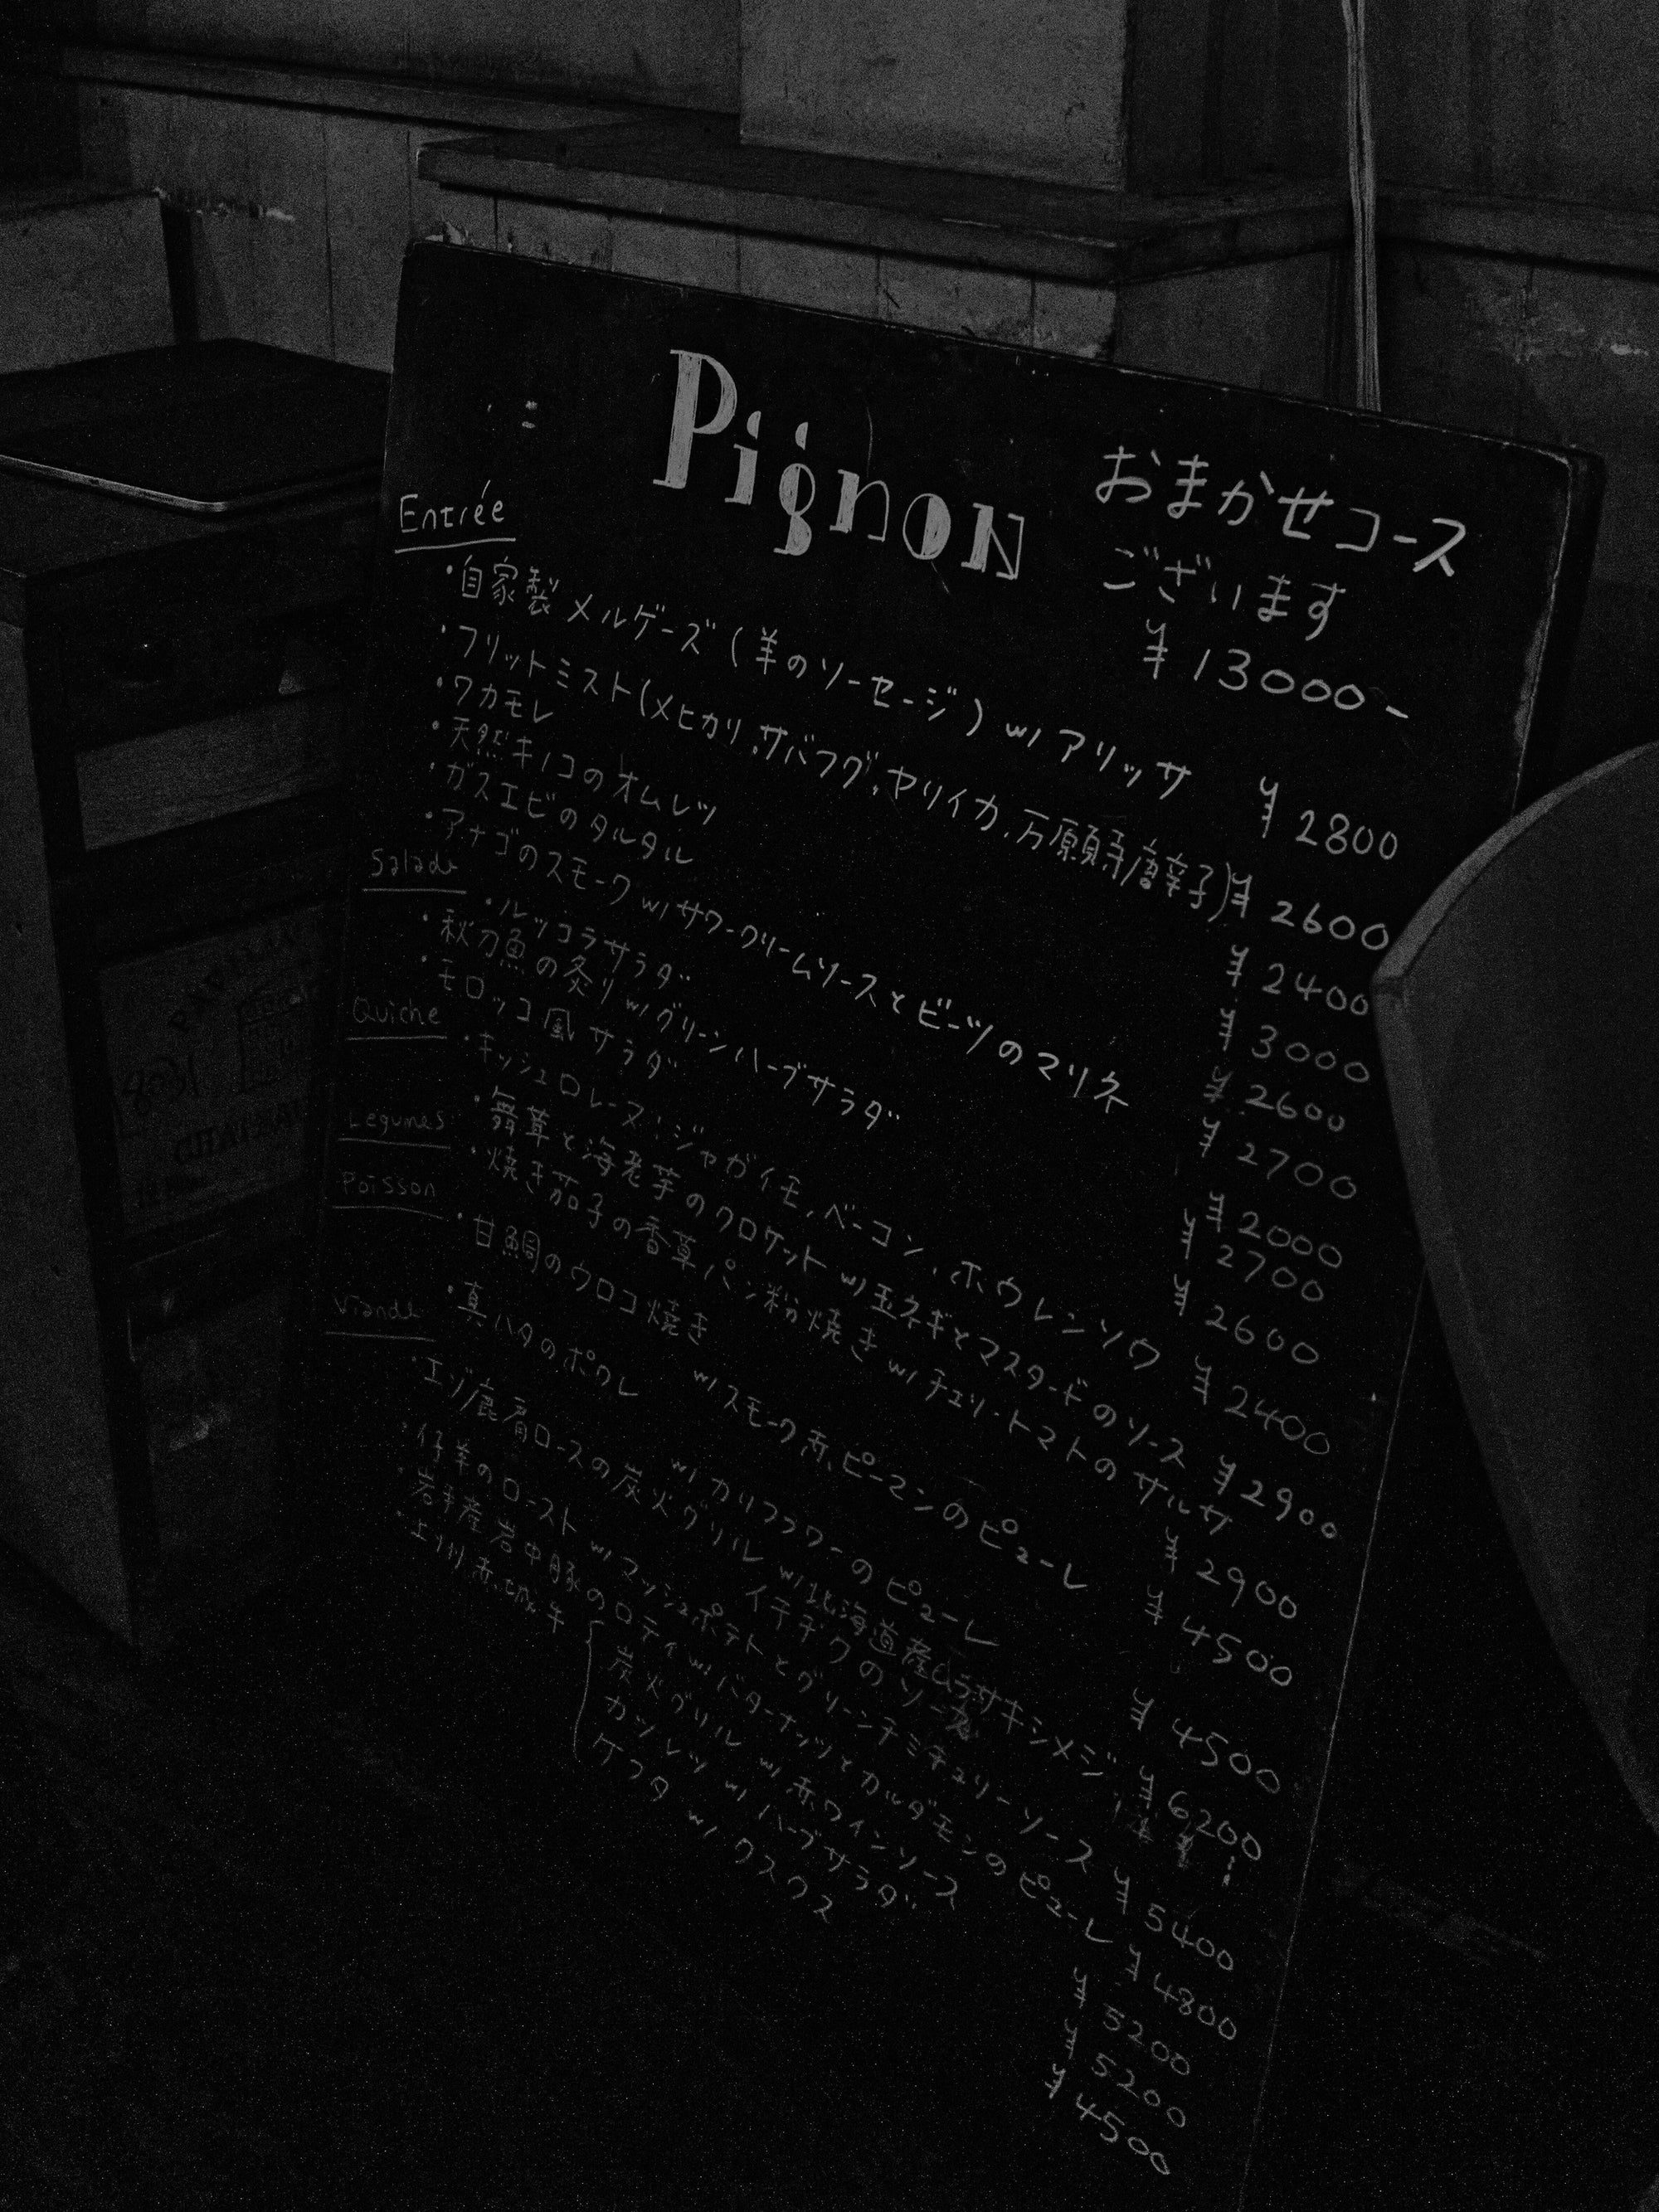 Pignon
おまかせコース
ございます
¥13000-
Entrée
・自家製メルゲーズ(羊のソーセージ) w/ アリッサ ¥2800
・フリットミスト(メヒカリ、サバフグ、ヤリイカ、万願寺唐辛子) ¥2600
・ワカモレ ¥2400
・天然キノコのオムレツ ¥3000
・ガスエビのタルタル ¥2600
・アナゴのスモーク w/ サワークリームソースとビーツのマリネ ¥2700
Salade
・ルッコラサラダ ¥2000
・秋刀魚の炙り w/ グリーンハーブサラダ ¥2700
・モロッコ風サラダ ¥2600
Quiche
・キッシュロレーヌ:ジャガイモ、ベーコン、ホウレンソウ ¥2400
Légumes
・舞茸と海老芋のクロケット w/ 玉ネギとマスタードのソース ¥2900
・焼き茄子の香草パン粉焼き w/ チェリートマトのサルサ ¥2900
Poisson
・甘鯛のウロコ焼き w/ スモーク赤ピーマンのピューレ ¥4500
・真ハタのポワレ w/ カリフラワーのピューレ ¥4500
Viande
・エゾ鹿肩ロースの炭火グリル w/ 北海道産ムラサキシメジ ¥6200
イチヂクのソース
・仔羊のロースト w/ マッシュポテトとグリーンチミチュリーソース ¥5400
・岩手産岩中豚のロティ w/ バターナッツとカルダモンのピューレ ¥4800
・上州赤城牛
炭火グリル w/ 赤ワインソース ¥5200
カツレツ w/ ハーブサラダ ¥5200
ケフタ w/ クスクス ¥4500